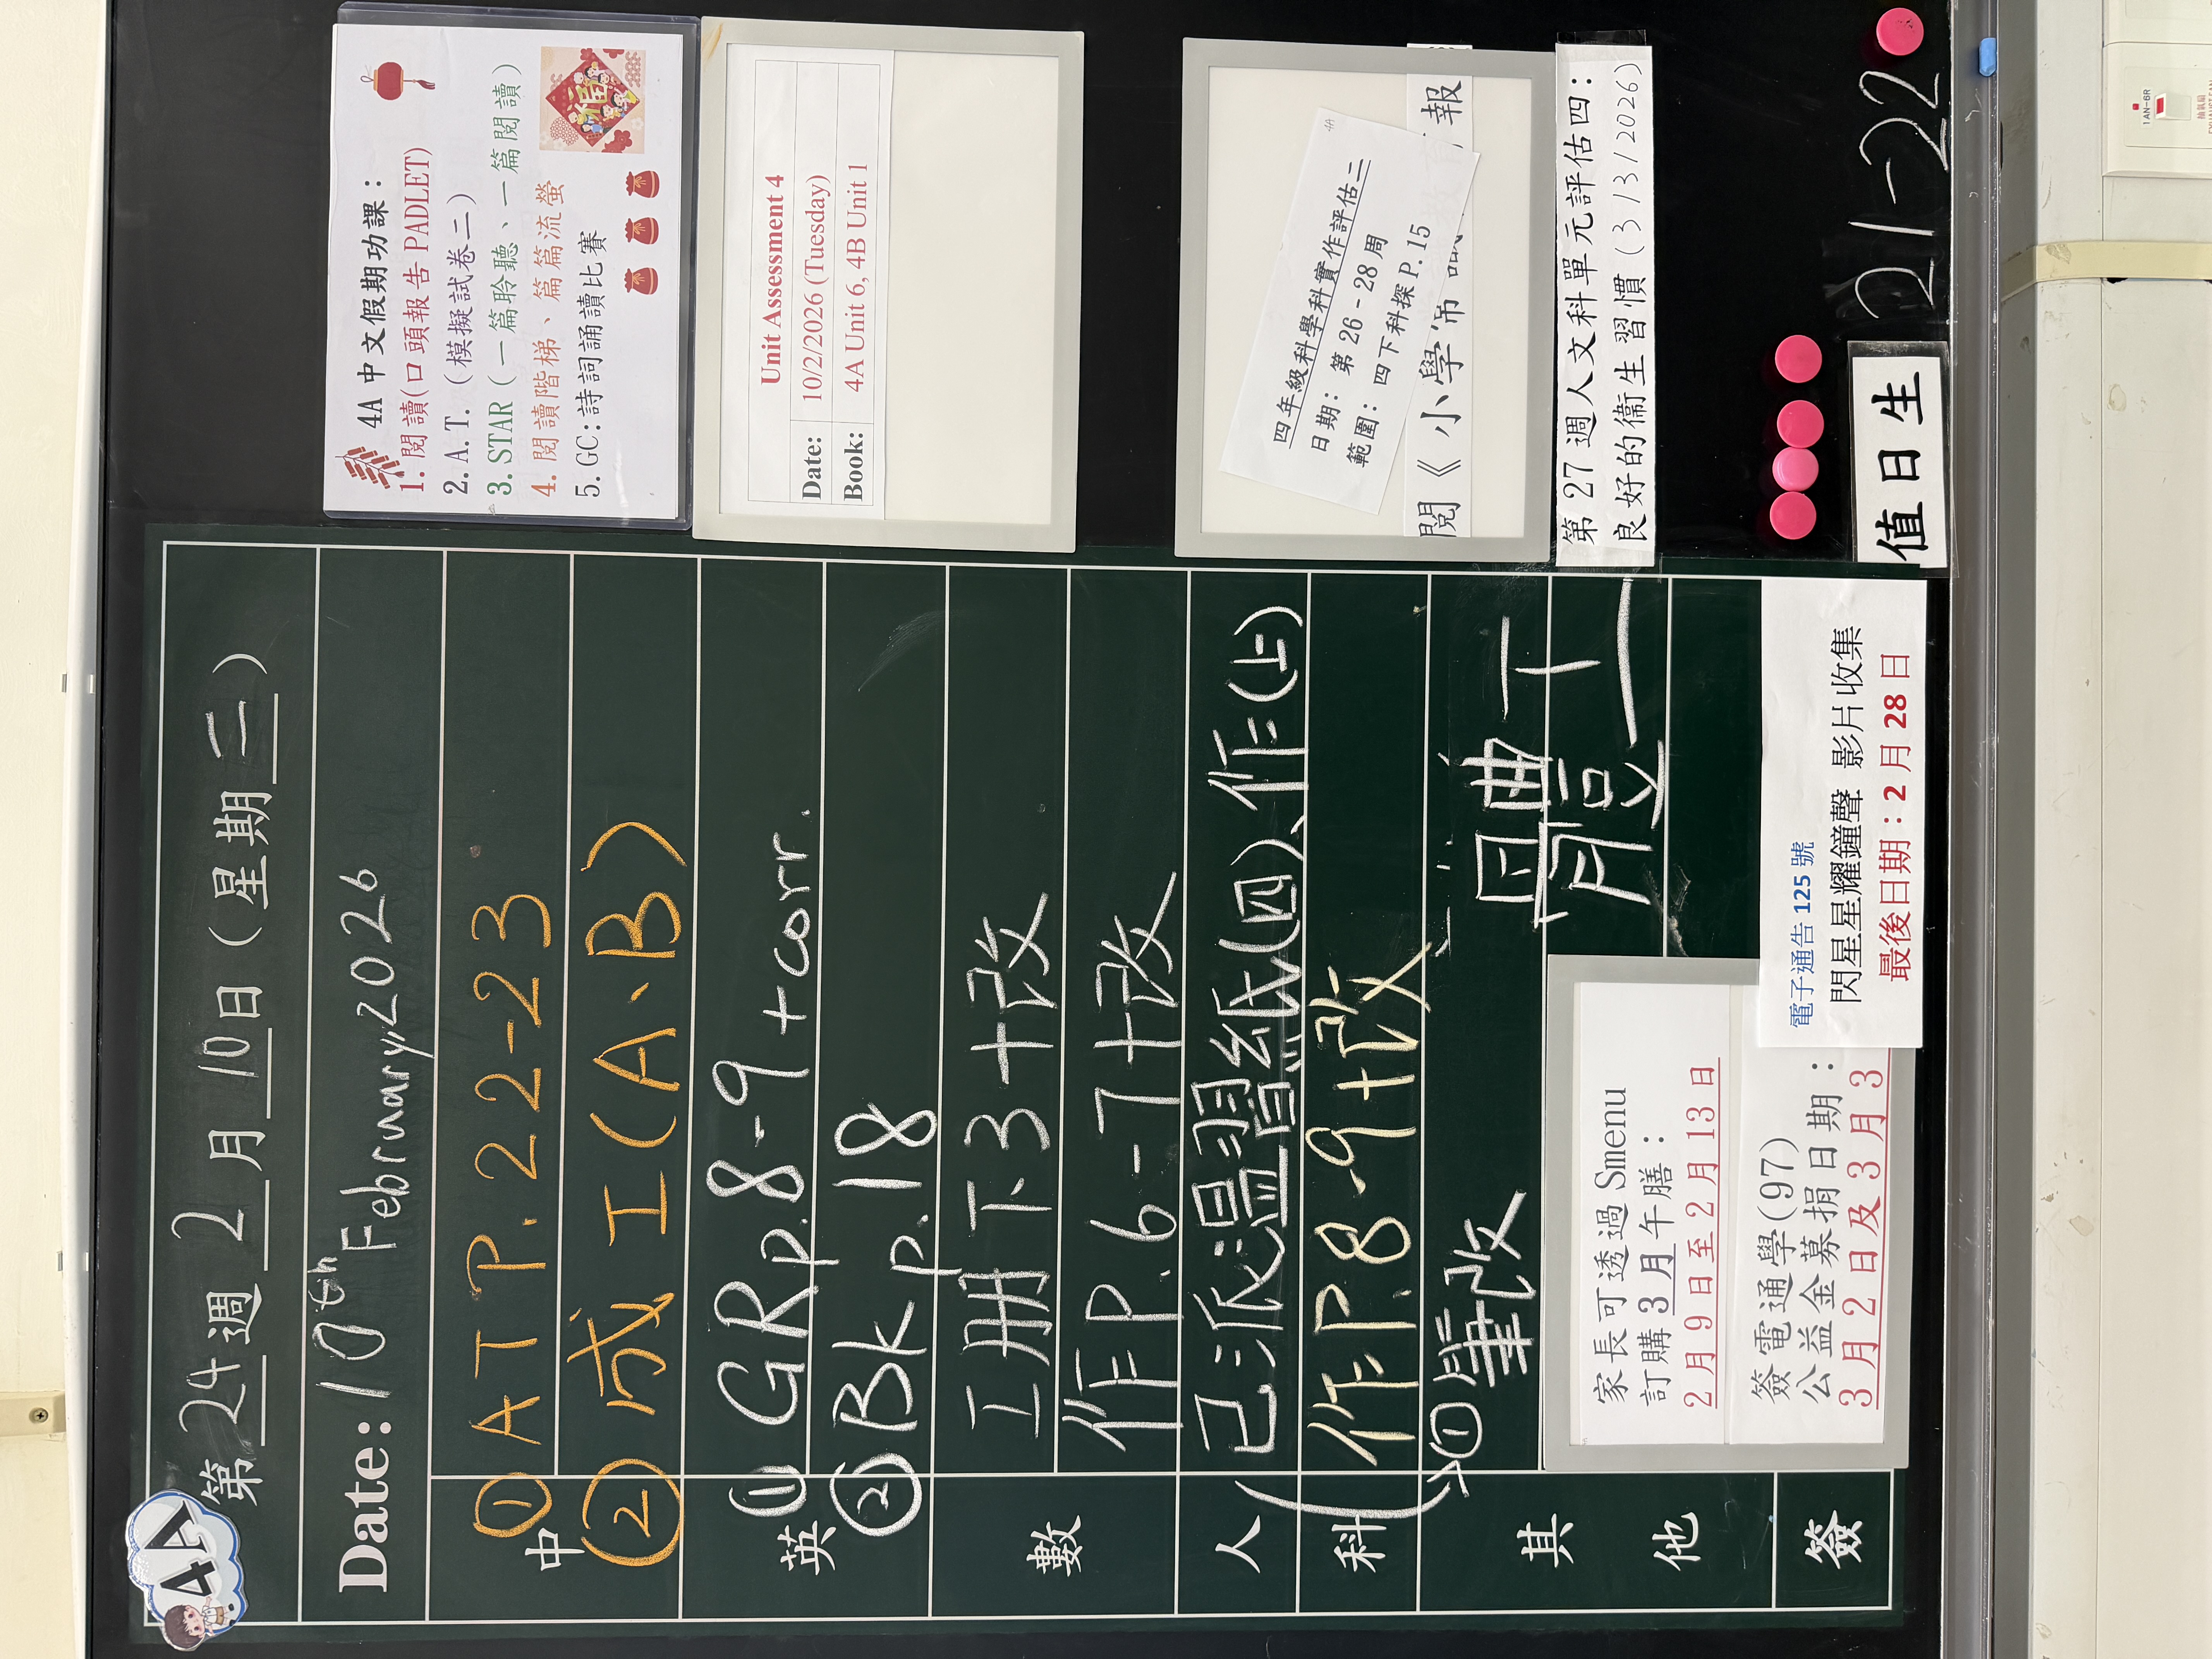 4A
第 24 週 2 月 10 日 ( 星期 二 )
Date: 10th February 2026
中
① AT P.22-23
② 成 工 (A、B)
英
① GR p.8-9 + corr.
② Bk p.18
數
工册下3+改
作P.6-7+改
人
已派溫習紙(四)、作(上)
科
作P.8-9+改
回筆改
其他
簽
家長可透過 Smenu
訂購 3 月 午膳：
2 月 9 日至 2 月 13 日
簽電通學(97)
公益金募捐日期：
3 月 2 日及 3 月 3
電子通告 125 號
閃星星耀鐘聲 影片收集
最後日期：2 月 28 日
4A 中文假期功課：
1. 閱讀(口頭報告 PADLET)
2. A.T. (模擬試卷二)
3. STAR (一篇聆聽、一篇閱讀)
4. 閱讀階梯、篇篇流螢
5. GC:詩詞誦讀比賽
福
Unit Assessment 4
Date: 10/2/2026 (Tuesday)
Book: 4A Unit 6, 4B Unit 1
4A
四年級科學科實作評估二
日期： 第 26-28 周
範圍： 四下科探 P.15
閱《小學常
報
第 27 週人文科單元評估四：
良好的衞生習慣 (3/3/2026)
值日生
21-22
1AN-6R